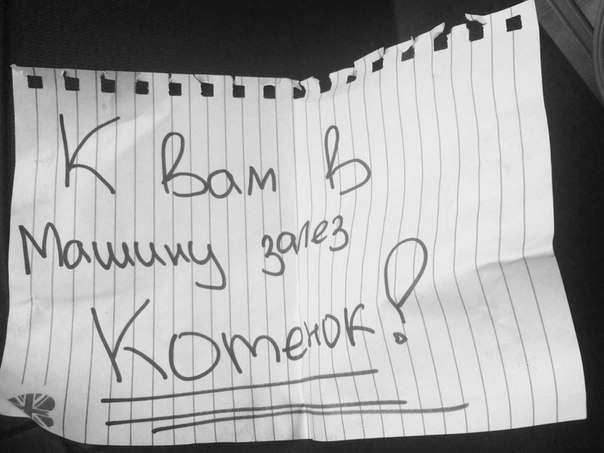 К вам в
машину залез
Котенок!